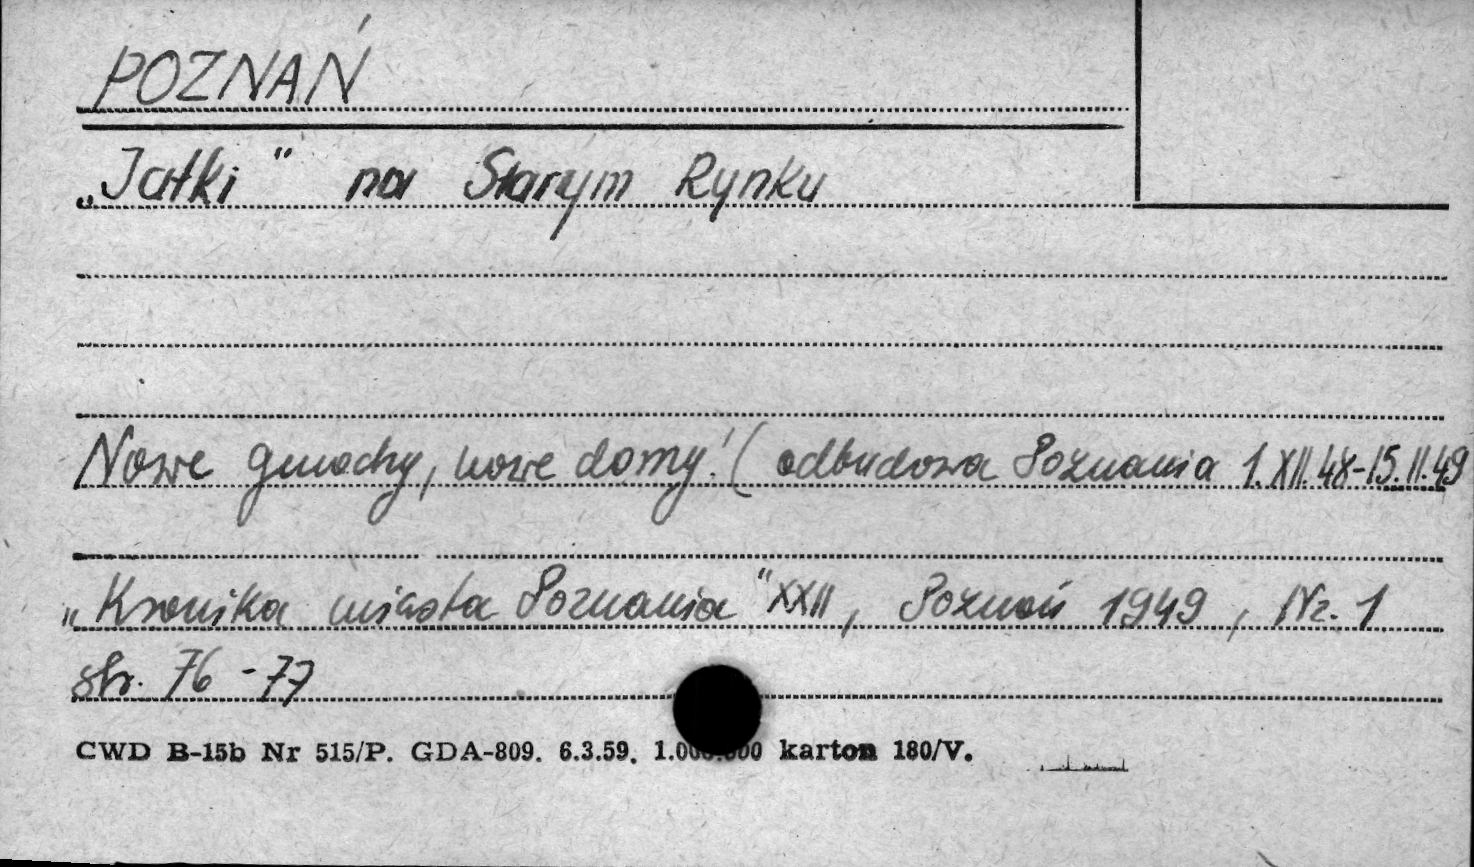 POZNAŃ
„Jatki" na Starym Rynku
Nowe gmachy, nowe domy! (odbudowa Poznania 1.XII.48-15.II.49
„Kronika miasta Poznania" XXII, Poznań 1949, Nr. 1
str. 76-77
CWD B-15b Nr 515/P. GDA-809. 6.3.59. 1.000.000 karton 180/V.